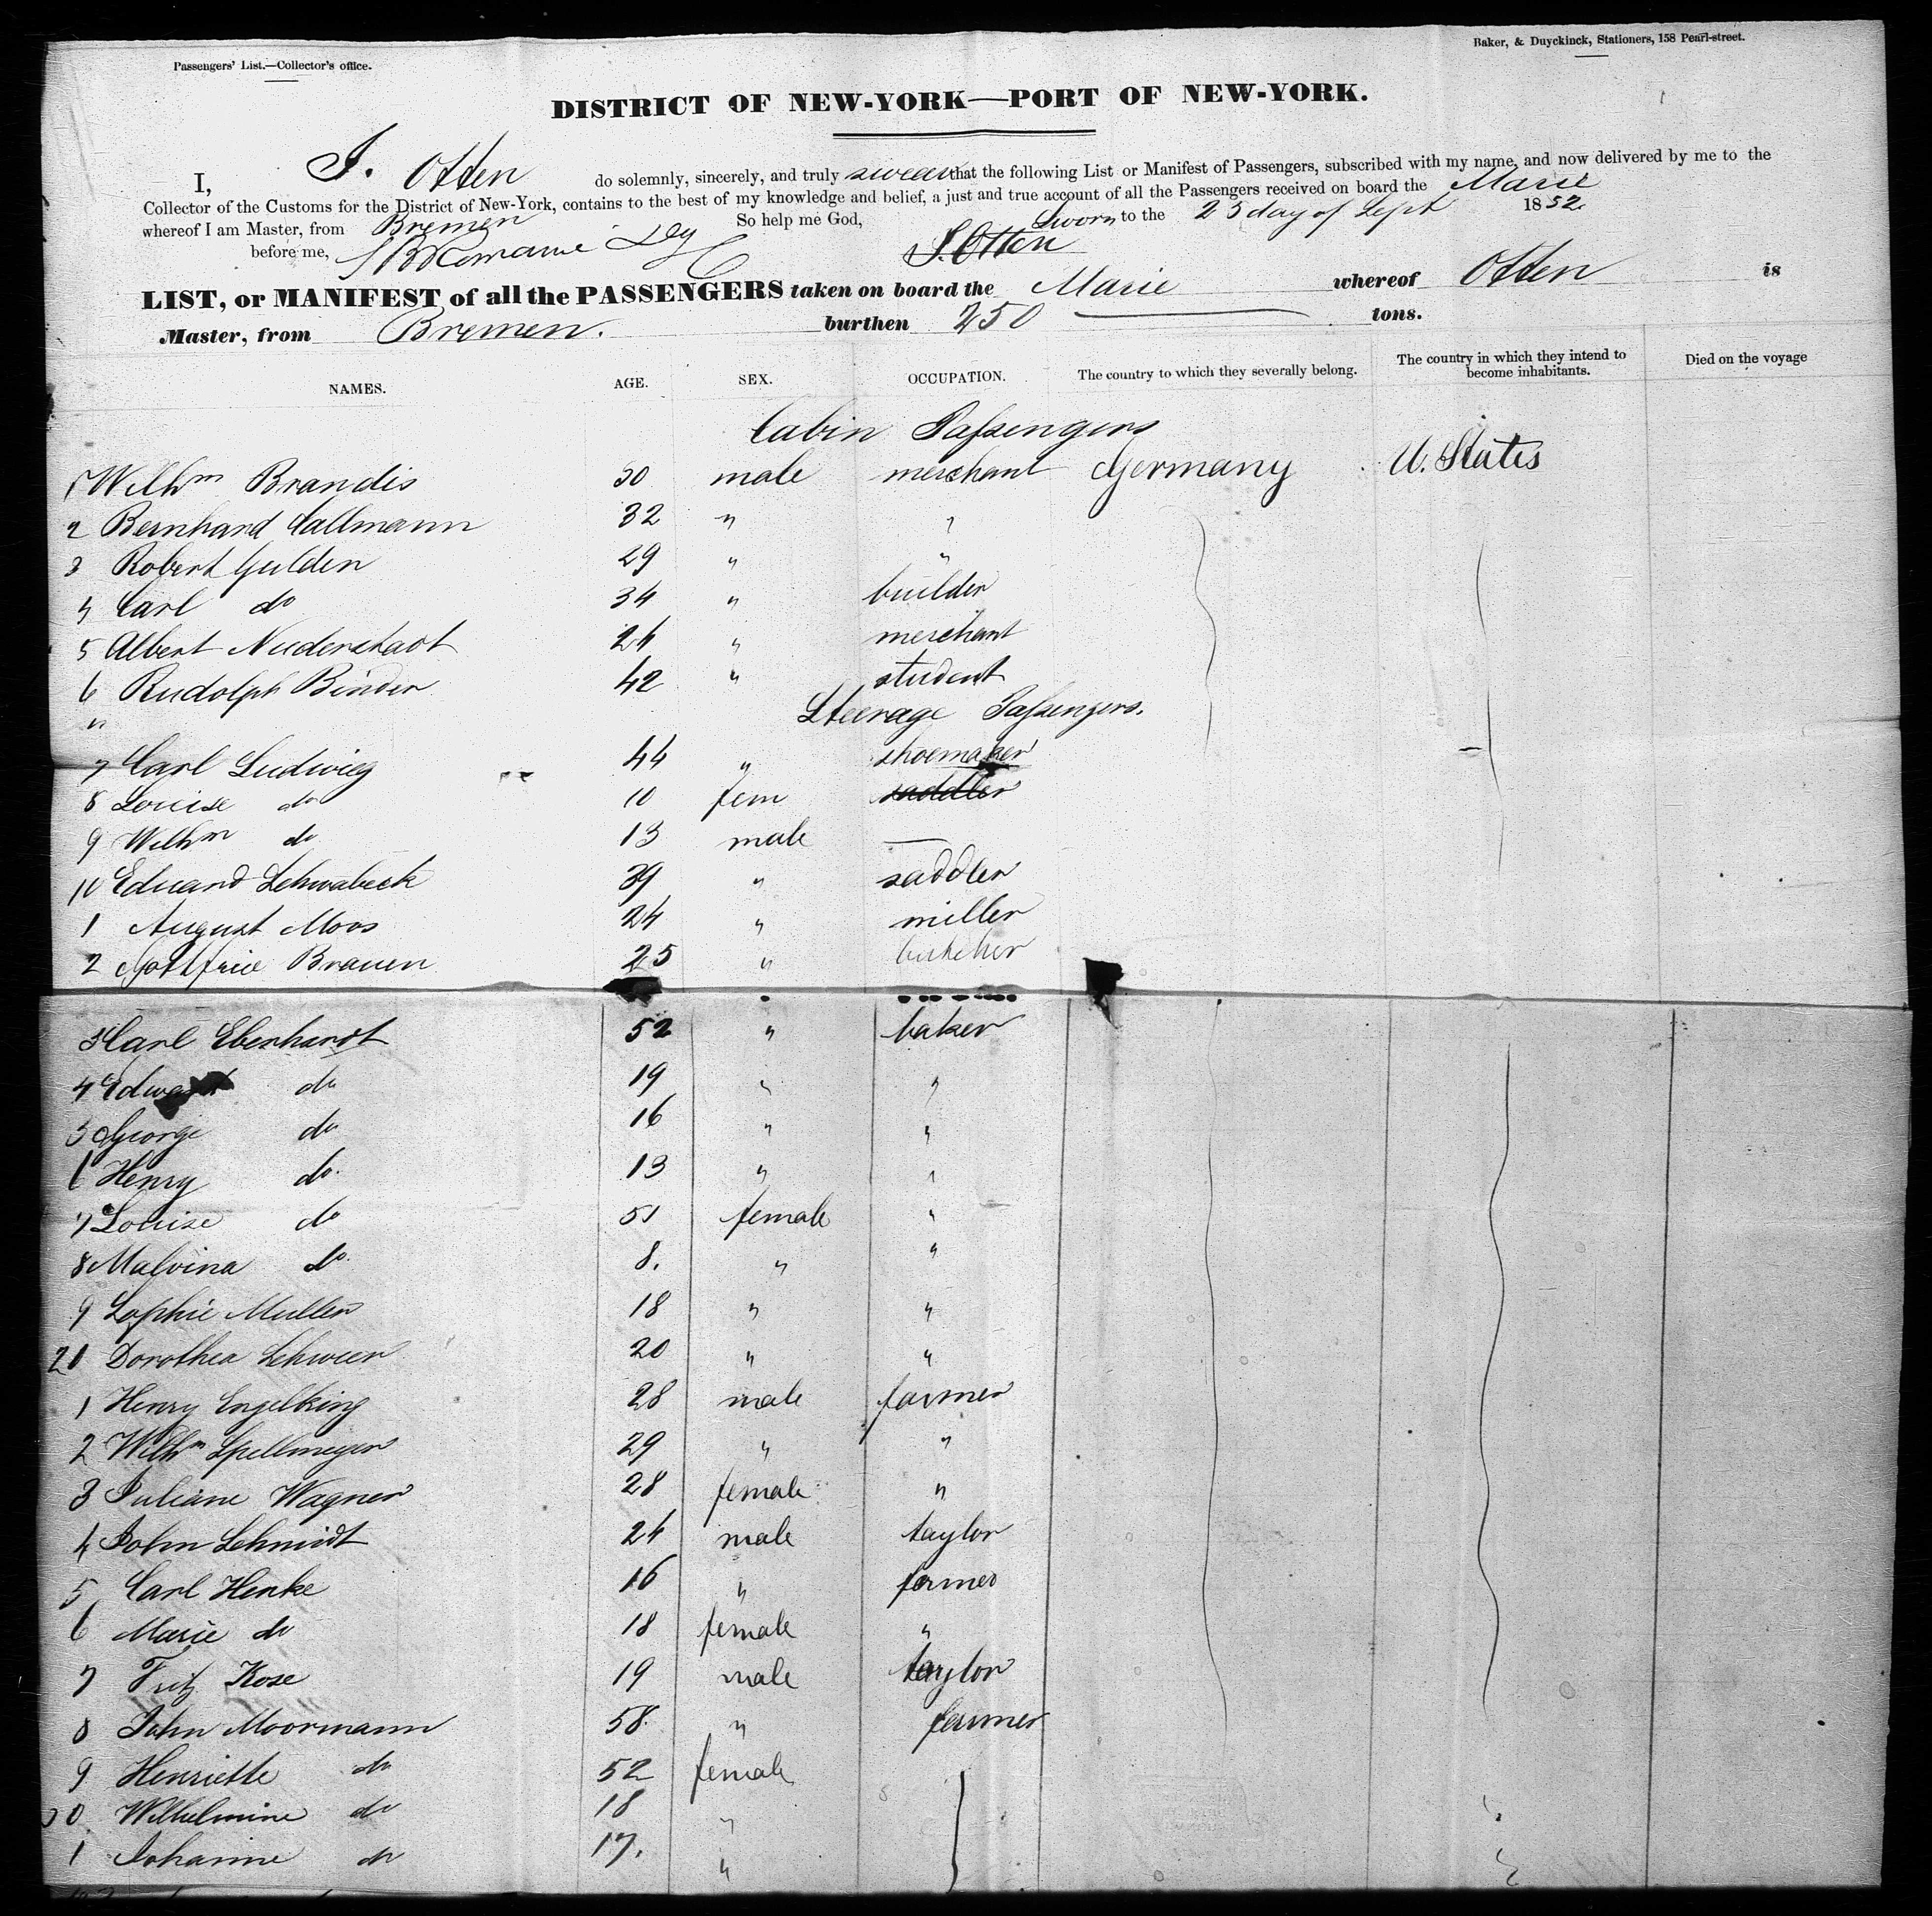 Passengers' List.—Collector's office.
Baker, & Duyckinck, Stationers, 158 Pearl-street.
DISTRICT OF NEW-YORK—PORT OF NEW-YORK.
I, J. Otten do solemnly, sincerely, and truly swear that the following List or Manifest of Passengers, subscribed with my name, and now delivered by me to the
Collector of the Customs for the District of New-York, contains to the best of my knowledge and belief, a just and true account of all the Passengers received on board the Marie
whereof I am Master, from Bremen So help me God,
Sworn to the 25 day of Sept 1852
before me, J. Otten
LIST, or MANIFEST of all the PASSENGERS taken on board the Marie whereof Otten is
Master, from Bremen. burthen 250 tons.
NAMES. AGE. SEX. OCCUPATION. The country to which they severally belong. The country in which they intend to become inhabitants. Died on the voyage
Cabin Passengers
1 Wilhm Brandis 30 male merchant Germany U. States
2 Bernhard Callmann 32 " "
3 Robert Gulden 29 " "
4 Carl do 34 " builder
5 Albert Niederstadt 24 " merchant
6 Rudolph Binder 42 " student
"
Steerage Passengers.
7 Carl Ludwig 44 " shoemaker
8 Louise do 10 fem saddler
9 Wilhm do 13 male —
10 Eduard Schwabeck 39 " saddler
1 August Moos 24 " miller
2 Gottfried Brauer 25 " butcher
3 Carl Eberhardt 52 " baker
4 Edward do 19 " "
5 George do 16 " "
6 Henry do. 13 " "
7 Louise do 51 female "
8 Malvina do. 8. " "
9 Sophie Muller 18 " "
20 Dorothea Schweer 20 " "
1 Henry Engelking 28 male farmer
2 Wilhm Spellmeyer 29 " "
3 Juliane Wagner 28 female "
4 John Schmidt 24 male taylor
5 Carl Henke 16 " farmer
6 Marie do 18 female "
7 Fritz Kose 19 male taylor
8 John Moormann 58. " farmer
9 Henriette do 52 female
30 Wilhelmine do 18 "
1 Johanne do 17. "